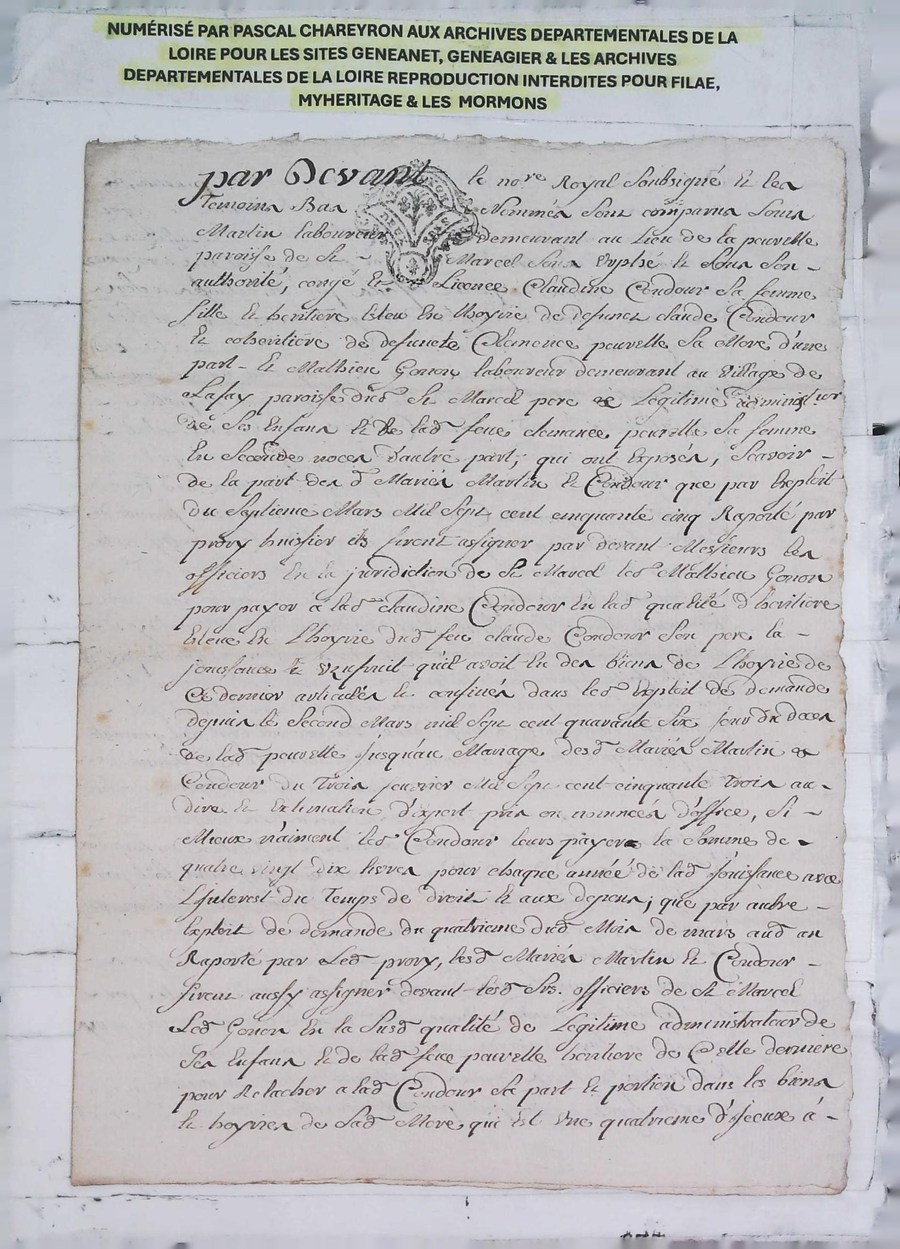 NUMÉRISÉ PAR PASCAL CHAREYRON AUX ARCHIVES DEPARTEMENTALES DE LA
LOIRE POUR LES SITES GENEANET, GENEAGIER & LES ARCHIVES
DEPARTEMENTALES DE LA LOIRE REPRODUCTION INTERDITES POUR FILAE,
MYHERITAGE & LES MORMONS
par Devant le nore Royal Soubsigné Et les
Temoins Bas Nommés sont comparus Louis
Martin laboureur demeurant au Lieu de la pouvelle
paroisse de St Marcel Et Sous Son
authorité, congé Et Licence Claudine Condour Sa femme
fille Et heritiere En Lhoyrie de defunct claude Condour
Et coheritiere de defuncte Clemence pouvelle Sa Mere d'une
part Et Mathieu Gonon laboureur demeurant au Village de
Lafay paroisse dud St Marcel pere & Legitime administrateur
de Ses Enfans Et de lad feue clemance pouvelle Sa femme
En Seconde noces d'autre part, qui ont Exposés, Scavoir
de la part des d Mariés Martin Et Condour que par Exploit
du Septieme Mars Mil Sept cent cinquante cinq Raporté par
provy huissier ils firent assigner par devant Messieurs les
officiers En la juridiction de St Marcel led Mathieu Gonon
pour payer à lad Claudine Condour En lad qualité d'heritiere
En Lhoyrie dud feu claude Condour Son pere la
jouissance & Usufruit qu'il avoit En des biens de Lhoyrie de
Ce dernier articulés Et confinés dans led Exploit de demande
depuis le Second Mars mil Sept cent quarante Six jour du deces
de lad pouvelle jusquau Mariage desd Mariés Martin &
Condour du Trois janvier Mil Sept cent cinquante Trois au
dire Et Estimation d'Expert pris ou nommés d'office, Si
Mieux n'aiment led Condour leurs payer la Somme de
quatre vingt dix livres pour chaque année de lad Jouissance avec
L'interest du Temps de droit Et aux depens; que par autre
Exploit de demande du quatrieme dud Mois de mars aud an
Raporté par Led provy, lesd Mariés Martin Et Condour
firent aussy assigner devant lesd Srs. officiers de St Marcel
Led Gonon En la Susd qualité de Legitime administrateur de
Ses Enfans Et de lad feue pouvelle heritiere de Celle derniere
pour Relacher a lad Condour Sa part Et portion dans les biens
Et hoyries de Sad Mere qui Est Une quatrieme d'Jceux à